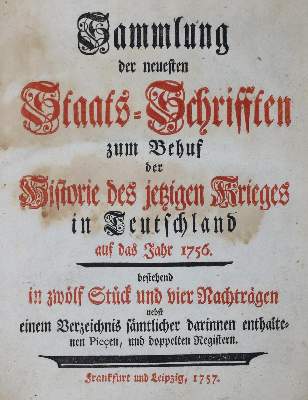 Sammlung
der neuesten
Staats-Schrifften
zum Behuf
der
Historie des jetzigen Krieges
in Teutschland
auf das Jahr 1756.
bestehend
in zwölf Stück und vier Nachträgen
nebst
einem Verzeichnis sämtlicher darinnen enthalte-
nen Pieçen, und doppelten Registern.
Franckfurt und Leipzig, 1757.